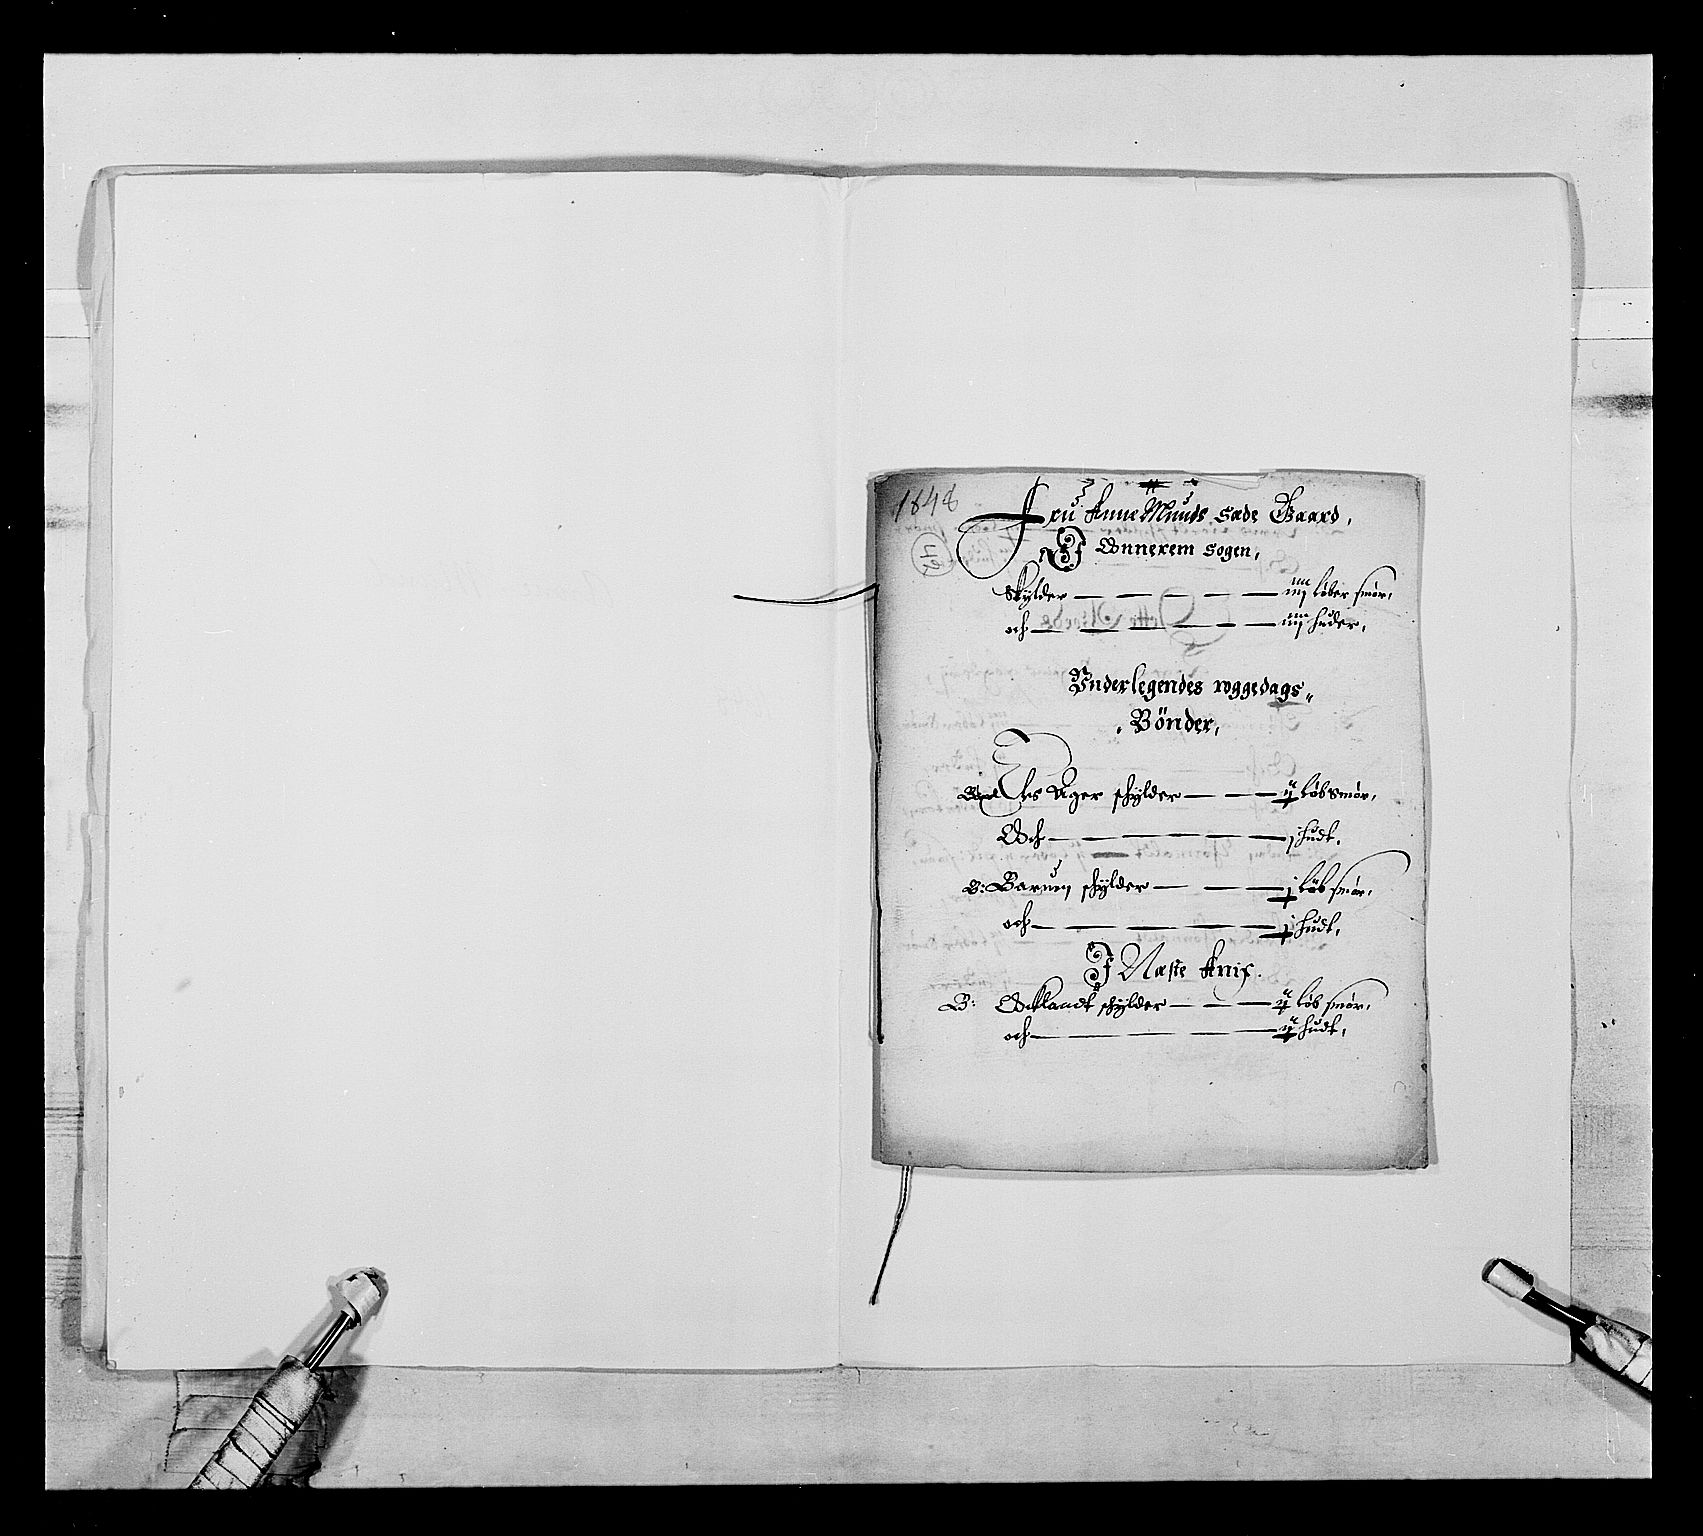 1648
Fru Anne Munds Sæde Gaard,
42
J Onnerem Sogen,
Skylder — — — — — iiij løber smør,
och — — — — — — iiij huder,
Vnderlegendes vggedags
Bönder,
Ager skylder — — — ij løb smør,
Och — — — — — — j hudt,
B: Barum skylder — — — j løb smør,
och — — — — — — j hudt,
J Næste Knif.
B: Ocklandt skylder — — — ij løb smør,
och — — — — — ij hudt,